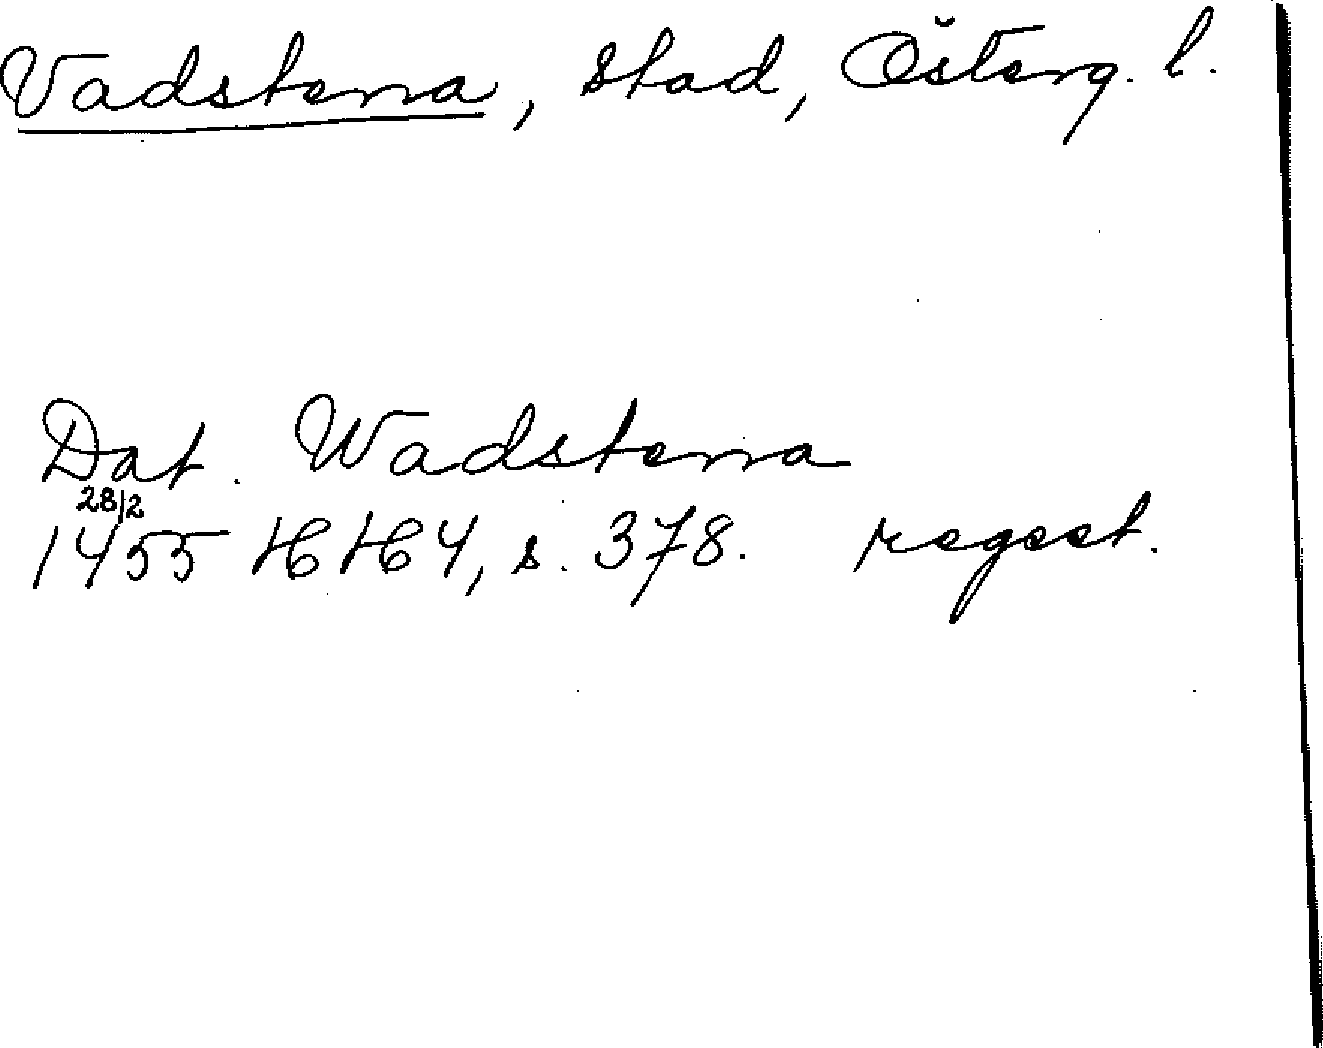 Vadstena, stad, Österg. l.
Dat. Wadstena
28/2
1455 HH 4, s. 378. regest.